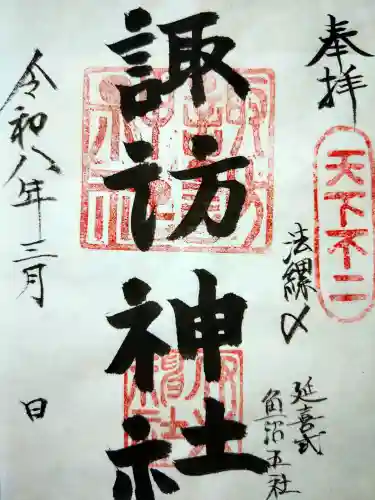 奉拝
天下不二
法螺〆
延喜式
魚沼五社
諏訪神社
令和八年三月　日